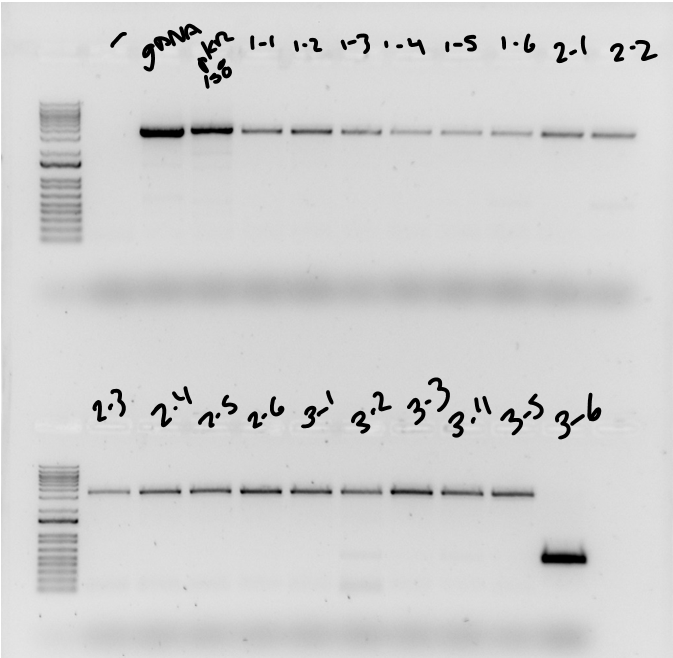 - gRNA pKR 1-1 1-2 1-3 1-4 1-5 1-6 2-1 2-2
150
2-3 2-4 2-5 2-6 3-1 3-2 3-3 3-4 3-5 3-6